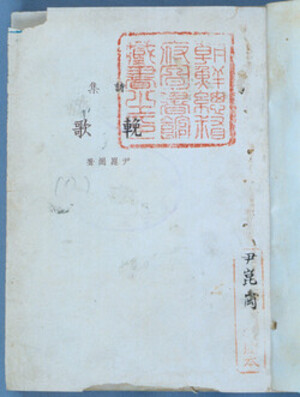 朝鮮總督
府圖書館
藏書之印
詩集
輓歌
尹崑崗著
尹崑崗